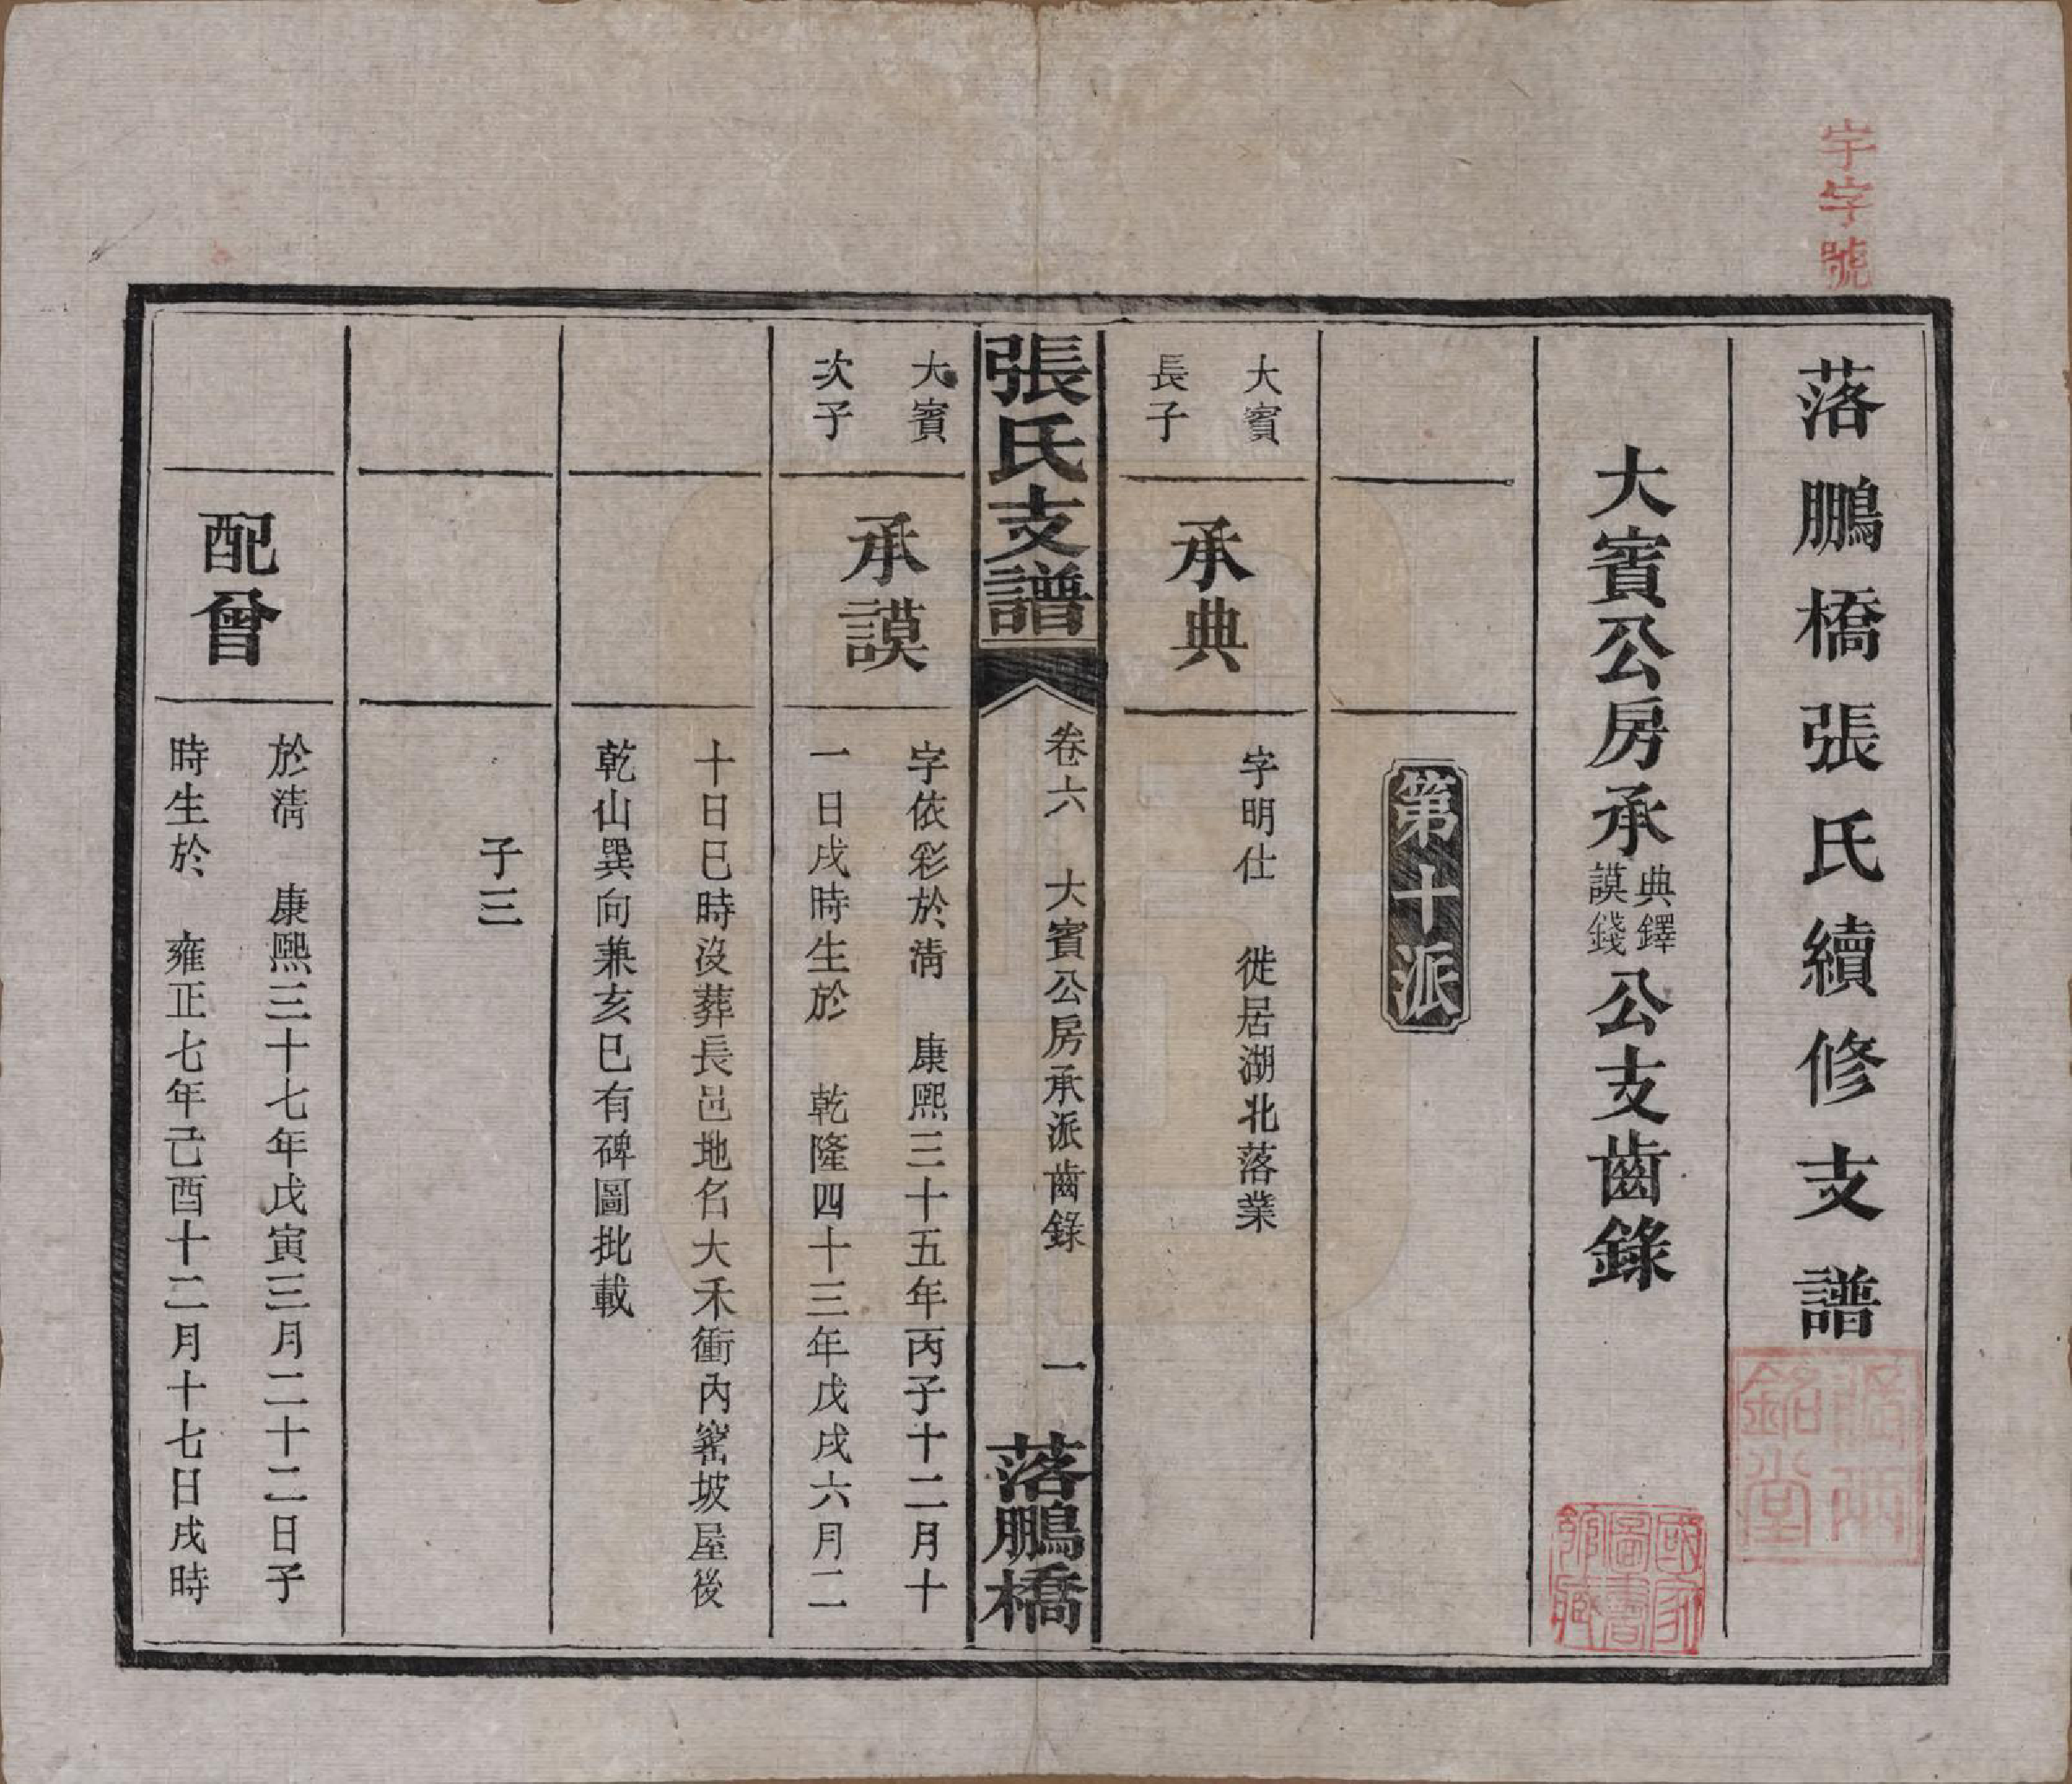 宇字號
落鵬橋張氏續修支譜
大賓公房承典鐸謨錢公支齒錄
第十派
大賓
長子
承典
字明仕　徙居湖北落業
張氏支譜　卷六　大賓公房承派齒錄　一　落鵬橋
大賓
次子
承謨
字依彩於淸　康熙三十五年丙子十二月十
一日戌時生於　乾隆四十三年戊戌六月二
十日巳時沒葬長邑地名大禾衝內窰坡屋後
乾山巽向兼亥巳有碑圖批載
子三
配曾
於淸　康熙三十七年戊寅三月二十二日子
時生於　雍正七年己酉十二月十七日戌時
張兩銘堂
國家圖書館藏